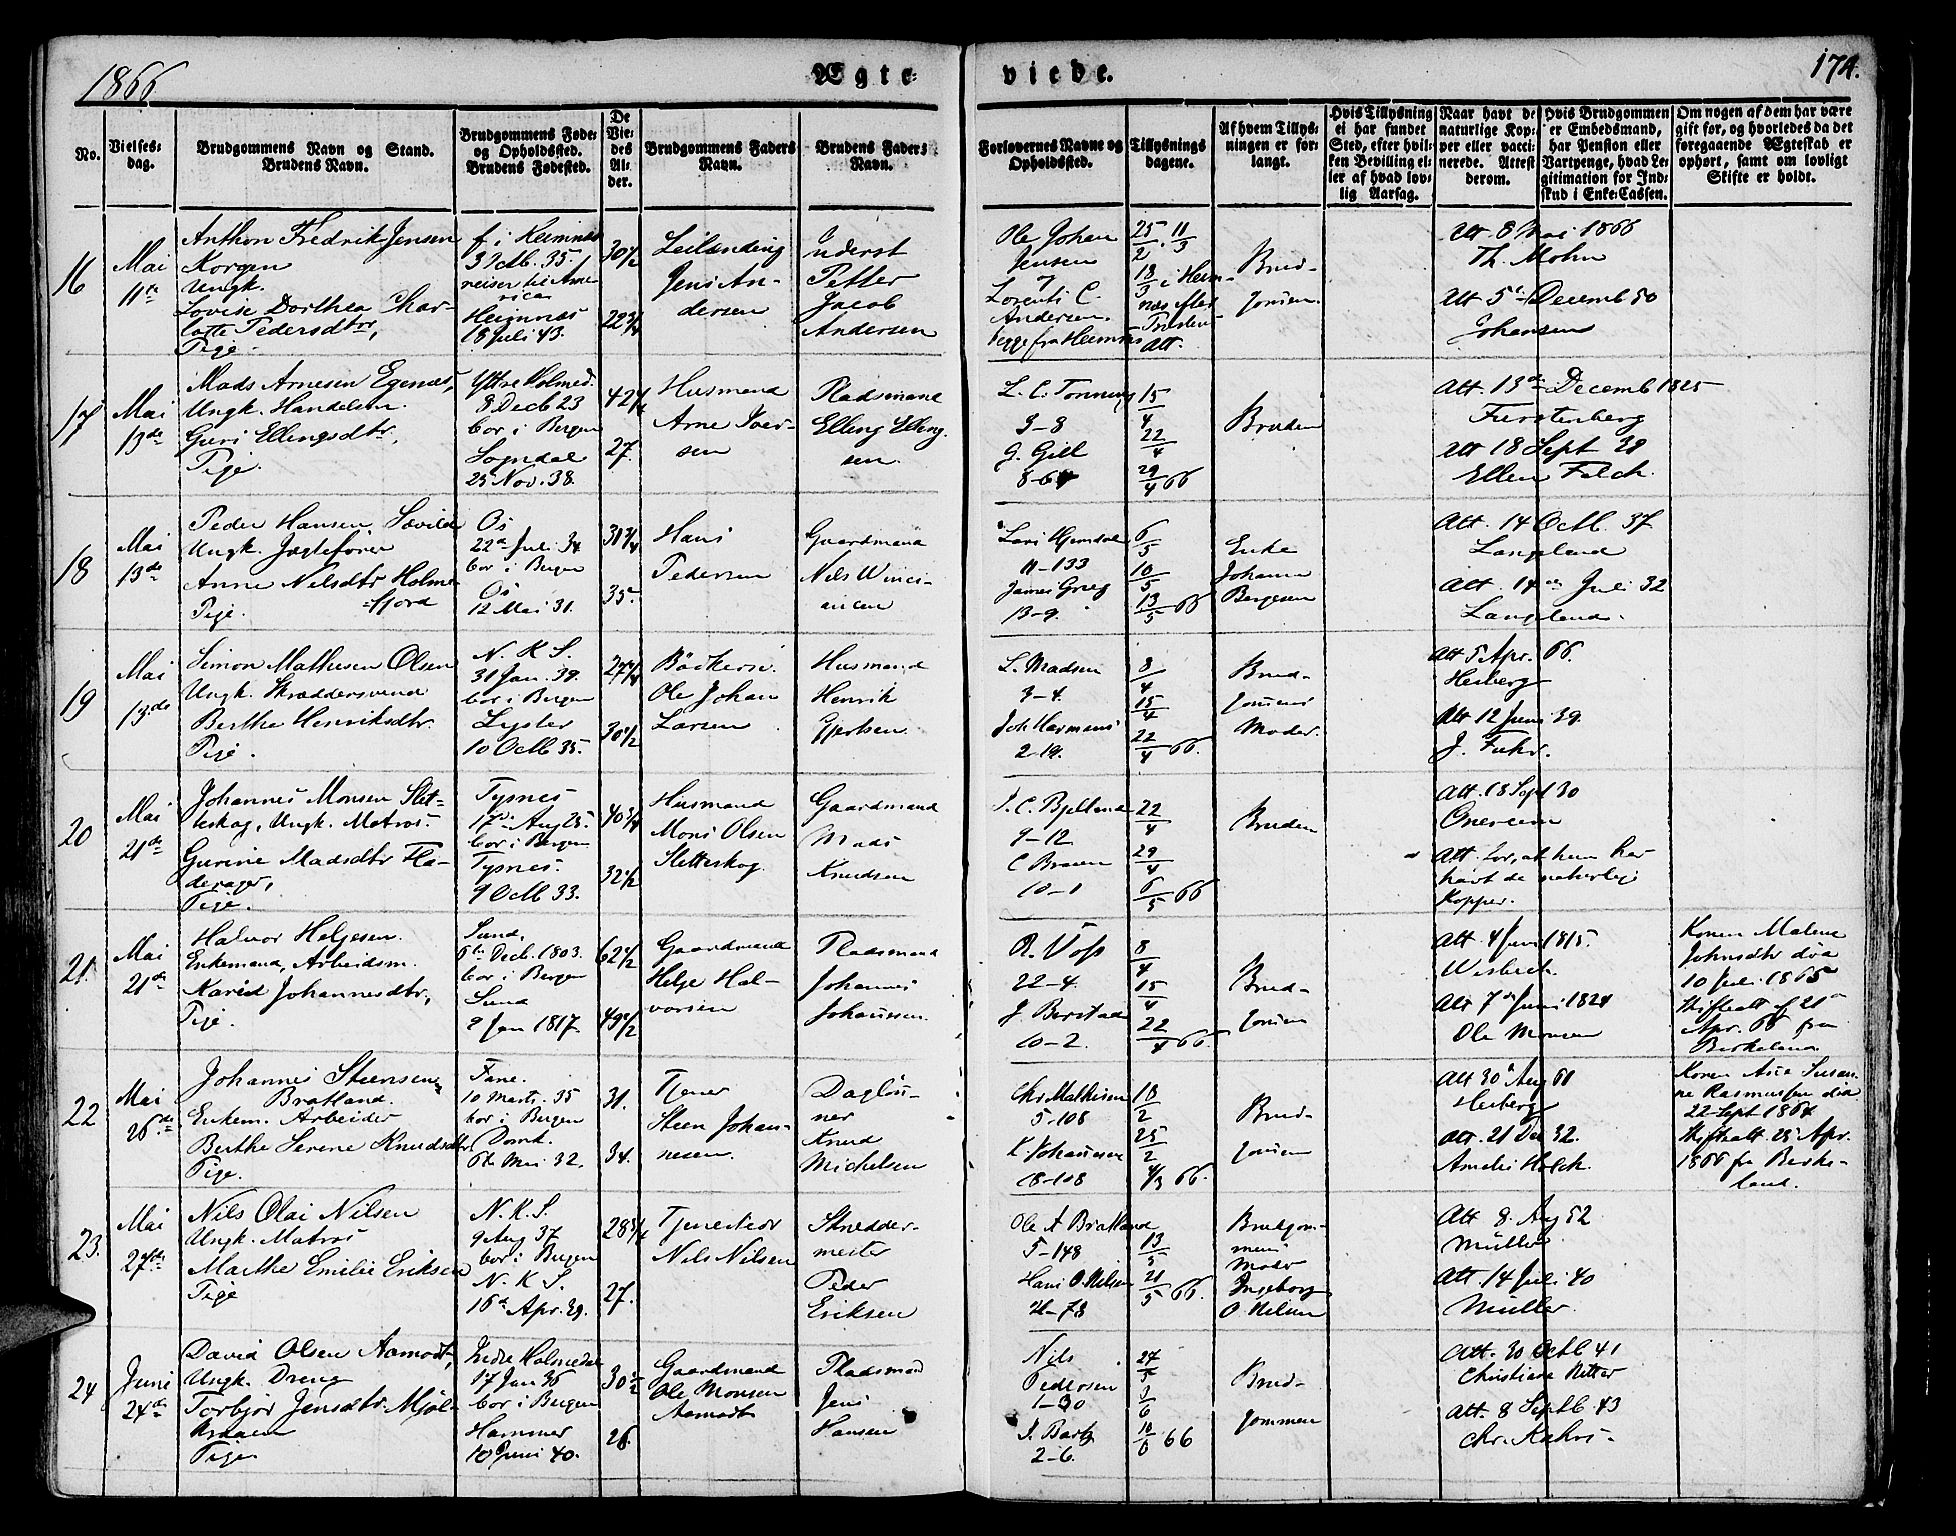 1866
Ægte-
viede.
174.
No.
Vielses-
dag.
Brudgommens Navn og Stand.
Brudens Navn.
Brudgommens Føde-
og Opholdssted.
Brudens Fødested.
De
Vie-
des
Al-
der.
Brudgommens Faders
Navn.
Brudens Faders
Navn.
Forlovernes Navne og
Opholdssted.
Tillysnings
dagene.
Af hvem Tillys-
ningen er for-
langt.
Hvis Tillysning
ei har fundet
Sted, efter hvil-
ken Bevilling el-
ler af hvad lov-
lig Aarsag.
Naar havt de
naturlige Kop-
per eller vacci-
nerede. Attest
derom.
Hvis Brudgommen
er Embedsmand,
har Pension eller
Vartpenge, hvad Le-
gitimation for Ind-
skud i Enke-Cassen.
Om nogen af dem har være
gift før, og hvorledes da det
foregaaende Ægteskab er
ophørt, samt om lovligt
Skifte er holdt.
16
Mai
11te
Anthon Fredrik Jensen
Korgen
Ungk.
Lovise Dorthea Char-
lotte Pedersdtr,
Pige.
f. i Hemnæs
3 Octb. 35.
reiser til Ame-
rica
Hemnæs
18 Juli 43.
30 1/2
22 3/4
Leilænding
Jens An-
dersen
Inderst
Petter
Jacob
Andersen
Ole Johan
Jensen
Lorents C.
Andersen.
begge fra Hemnæs
25/2 . 11/3
18/3 i Hem-
næs efter
Præstens
Att.
Brud-
gommen.
Att. 8 Mai 1866
Th. Mohn
Att 5te Decemb 50
Johansen
17
Mai
13de
Mads Arnesen Egenæs,
Ungk. Handelsm.
Guri Ellingsdtr,
Pige.
Yttre Holmed.
8 Decb 23
bor i Bergen
Sogndal
25 Nov. 38.
42 1/4
27.
Husmand
Arne Iver-
sen
Pladsmand
Elling Elling-
sen.
L. C. Tonning
3-8
G. Gill
8-64
15/4
22/4
29/4 66
Bruden
Att. 13de Decemb 1825
Furstenberg
Att 18 Sept 38
Ellen Falch.
18
Mai
13de
Peder Hansen Søvild
Ungk. Jægtefører
Anne Nilsdtr Holme-
fjord
Pige.
Os
22de Juli 34
bor i Bergen
Os
12 Mai 31.
31 3/4
35.
Hans
Pedersen
Gaardmand
Nils Winci-
ancen
Lars Hjemdal
11-133
James Grieg
13-9.
6/5
10/5
13/5 66
Enke
Johanne
Bergesen
Att. 14 Octb. 37
Langeland
Att. 14de Juli 32
Langeland.
19
Mai
13de
Simon Mathesen Olsen
Ungk. Skræddersvend
Berthe Henriksdtr.
Pige.
N. K. S.
31 Jan. 39.
bor i Bergen
Lyster
10 Octb 35.
27 1/4
30 1/2
Bødkersv.
Ole Johan
Larsen
Husmand
Henrik
Gjertsen.
L. Madsen
3-4.
Joh Harmens
2-19.
8/4
15/4
22/4 66.
Brud-
gommens
Moder.
Att 5 Apr. 66.
Heiberg
Att 12 Juni 39.
J. Fuhr.
20
Mai
21de
Johannes Monsen Slet-
teskog, Ungk. Matros.
Gurine Madsdtr Fla-
derager,
Pige.
Tysnes
17de Aug 25.
bor i Bergen
Tysnes.
9 Octb 33.
40 3/4
32 1/2
Husmand
Mons Olsen
Sletteskog
Gaardmand
Mads
Knudsen
J. C. Bjelland
9-12
C Bruun
10-1
22/4
29/4
6/5 66
Bruden
Att. 18 Sept 30
Att. for, at hun har
havt de naturlige
Kopper.
21.
Mai
21de
Halvor Helgesen.
Enkemand, Arbeidsm.
Kari Johannesdtr,
Pige.
Sund.
6te Decb. 1803.
bor i Bergen
Sund
9 Jan 1817.
62 1/2
49 1/2
Gaardmand
Helge Hal-
vorsen
Pladsmand
Johannes
Johansen.
R. Voss
22-4.
J. Berstad
10-2.
8/4
15/4
22/4 66.
Brud-
gommen
Att. 4 Juni 1815.
Wesbech.
Att 7de Juni 1824
Ole Monsen
Konen Malene
Johnsdtr død
10 Juli 1865
Skifteatt af 21de
Apr. 66 fra
Berkeland
22
Mai
26de
Johannes Steensen
Bratland.
Enkem. Arbeider
Berthe Serene Knudsdtr
Pige.
Fane.
10 Marts. 35
bor i Bergen
Domk.
6te Mai 32.
31.
34.
Tjener
Steen Johan-
nesen.
Dagløn-
ner
Knud
Michelsen
Chr Mathisen
5-108
K. Johannesen
8-108
18/2
25/2
4/3 66.
Brud-
gommen
Att 30 Aug 61
Heiberg
Att. 21 Dec 32.
Amelie Holck.
Konen Asia Susan-
ne Rasmusen død
22 Sept 1864
Skifteatt. 25 Apr.
1866 fr Berke-
land.
23.
Mai
27de
Nils Olai Nilsen
Ungk. Matros
Marthe Emilie Eriksen
Pige
N. K. S.
9 Aug 37
bor i Bergen
N. K. S.
16de Apr. 39.
28 3/4
27.
Tjenestkar
Nils Nilsen
Skredder-
mester
Peder
Eriksen
Ole A Bratland
5-148
Hans O. Nilsen
21-78
13/5
21/5 66.
Brudgom-
mens
Moder
Ingeborg
O. Nilsen
Att 8. Aug 52
Müller
Att. 14 Juli 40
Müller.
24
Juni
24de
David Olsen Aamodt,
Ungk. Dreng
Torbjør Jensdtr Mjøl-
Pige.
Indre Holmedal
17 Jan 36
bor i Bergen
Hammer
10 Juni 40.
30 1/2
26.
Gaardmand
Ole Monsen
Aamodt
Pladsmand
Jens
Hansen
Nils
Pedersen
1-30
J. Bartz
2-6.
27/5
3/6
10/6 66
Brud-
gommen
Att. 30 Octb 41
Christiane Ritter
Att. 8 Septb 43
Chr. Kahrs.